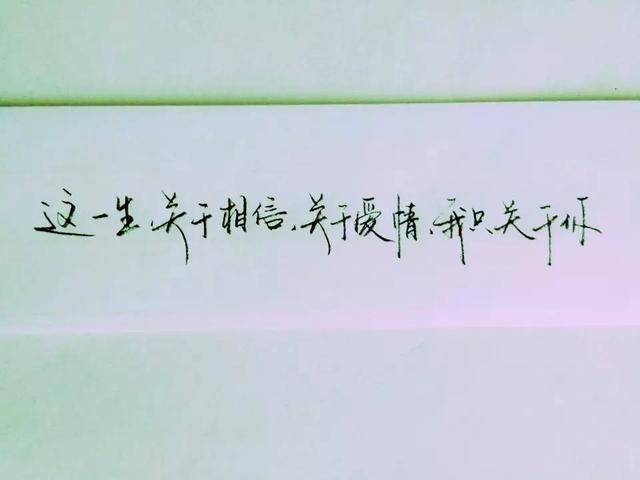 这一生、关于相信、关于爱情、我只关于你